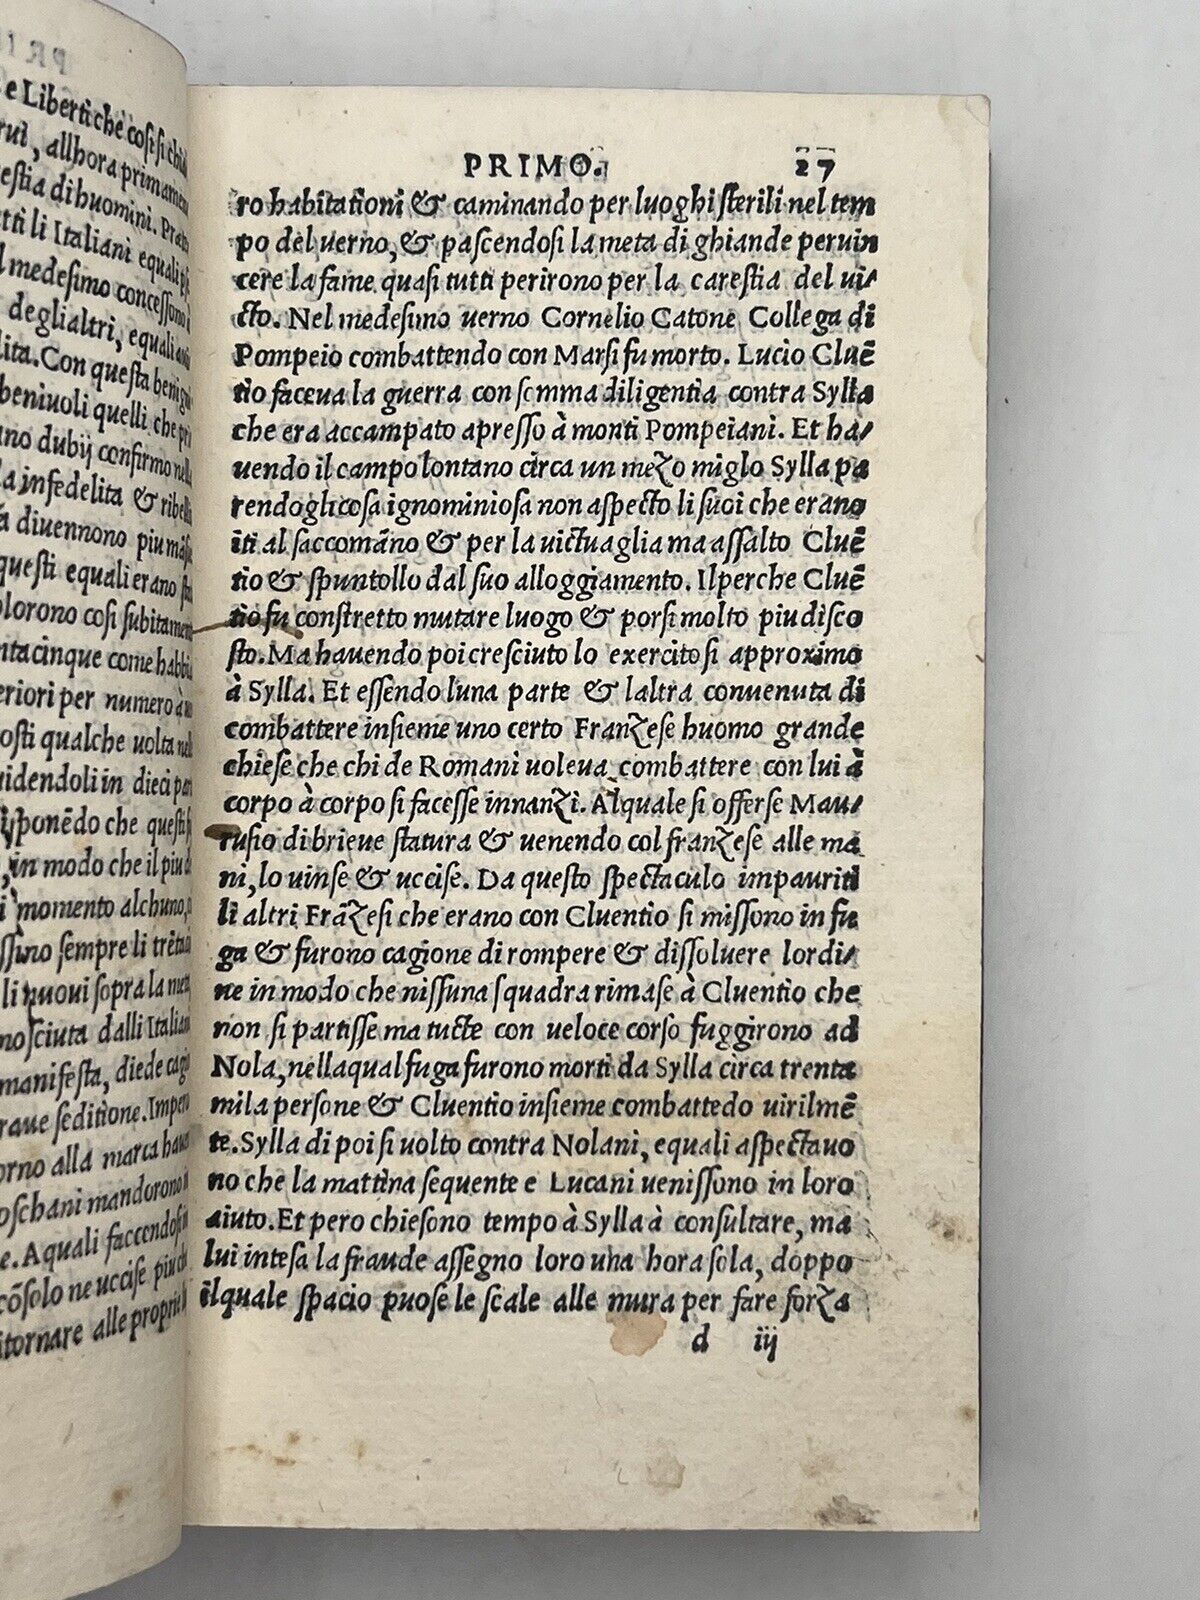 e Liberti che cosi si chia
rui, allhora primamen
estia di huomini. Prato
tti li Italiani equali pi
l medesimo concessono
deglialtri, equali an
lita. Con questa benig
beniuoli quelli che pri
no dubij confirmo nella
a infedelita & ribelli
a diuennono piu māsu
questi equali erano sta
lorono cosi subitamen
ntacinque come habbi
eriori per numero à
osti qualche uolta nel
uidendoli in dieci par
ponēdo che questi
, in modo che il piu d
i momento alchuno,
ssino sempre li trēta
li nuoui sopra la me
nosciuta dalli Italiani
manifesta, diede cagi
raue seditione. Impero
orno alla marca haue
oschani mandorono
e. A quali faccendosi
cōsolo ne uccise piu
itornare alle proprie
PRIMO. 27
ro habitationi & caminando per luoghi sterili nel tem
po del uerno, & pascendosi la meta di ghiande peruin
cere la fame quasi tutti perirono per la carestia del ui/
cto. Nel medesimo uerno Cornelio Catone Collega di
Pompeio combattendo con Marsi fu morto. Lucio Cluē
tio faceua la guerra con somma diligentia contra Sylla
che era accampato apresso à monti Pompeiani. Et ha/
uendo il campo lontano circa un mezo miglo Sylla pa
rendogli cosa ignominiosa non aspecto li suoi che erano
iti al saccomāno & per la uictuaglia ma assalto Cluē
tio & spuntollo dal suo alloggiamento. Il perche Cluē
tio fu constretto mutare luogo & porsi molto piu disco
sto. Ma hauendo poi cresciuto lo exercito si approximo
à Sylla. Et essendo luna parte & laltra conuenuta di
combattere insieme uno certo Franzese huomo grande
chiese che chi de Romani uoleua combattere con lui à
corpo à corpo si facesse innanzi. Al quale si offerse Mau/
rusio di brieue statura & uenendo col franzese alle ma
ni, lo uinse & uccise. Da questo spectaculo impauriti
li altri Frāzesi che erano con Cluentio si missono in fu
ga & furono cagione di rompere & dissoluere lordi/
ne in modo che nissuna squadra rimase à Cluentio che
non si partisse ma tucte con ueloce corso fuggirono ad
Nola, nella qual fuga furono morti da Sylla circa trenta
mila persone & Cluentio insieme combattedo uirilmē
te. Sylla di poi si uolto contra Nolani, equali aspectauo
no che la mattina sequente e Lucani uenissono in loro
aiuto. Et pero chiesono tempo à Sylla à consultare, ma
lui intesa la fraude assegno loro una hora sola, doppo
ilquale spacio puose le scale alle mura per fare forza
d iij